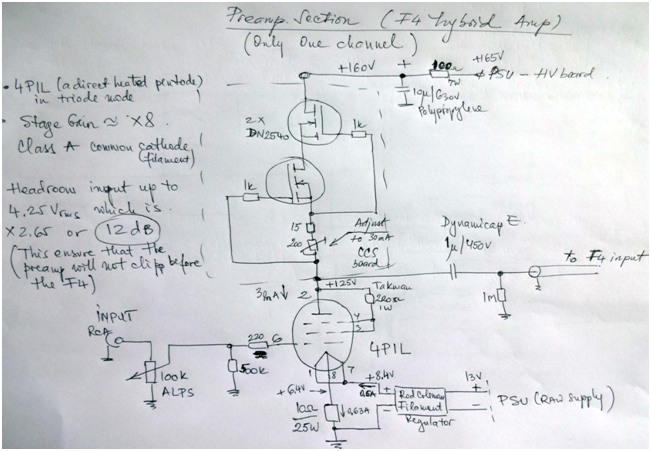 Preamp. Section (F4 hybrid Amp)
(Only One channel)
• 4P1L (a direct heated pentode)
in triode mode
• Stage Gain ≈ ×8
Class A common cathode
(filament)
Headroom input up to
4.25 Vrms which is
×2.65 or 12 dB
(This ensure that the
preamp will not clipp before
the F4)
+160V
+
100Ω
7W
+165V
PSU - HV board
10µ/630V
Polypropylene
2 x
DN2540
1k
1k
15
200
Adjust
to 30mA
CCS
board
Dynamicap E.
1µ/450V
to F4 input
1m
+125V
30mA ↓
2
Takman
1W
4
3
4P1L
INPUT
RCA
100k
ALPS
500k
220
6
1
8
7
+6.4V
10Ω
25W
↓0.63A
+8.4V
0.6A
+
-
Rod Coleman
Filament
Regulator
13V
+
-
PSU (RAW Supply)